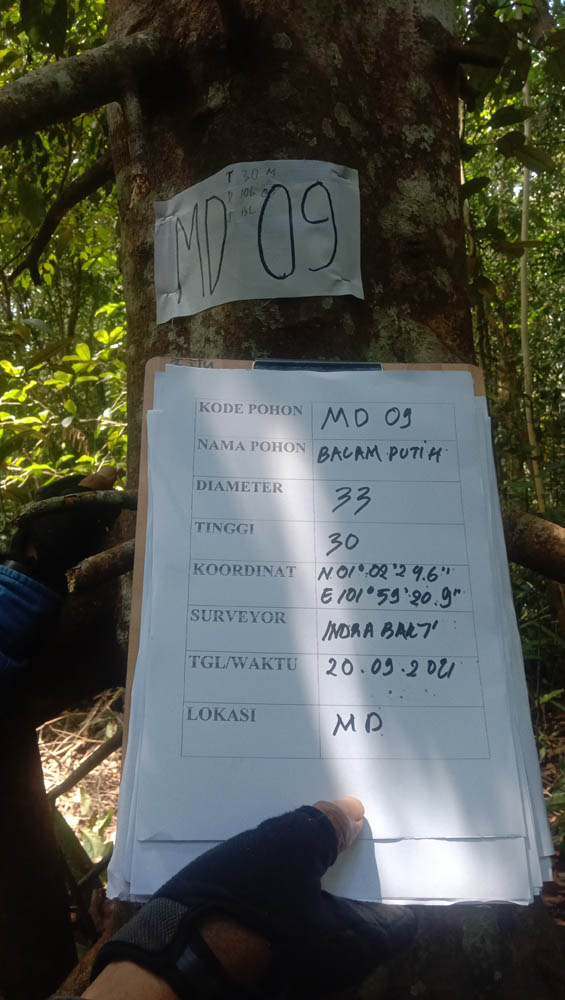 T 30 M
D 106
BL
MD 09
KODE POHON MD 09
NAMA POHON BALAM PUTIH
DIAMETER 33
TINGGI 30
KOORDINAT N 01° 02' 29.6"
E 101° 59' 20.9"
SURVEYOR INDRA BAKTI
TGL/WAKTU 20.09.2021
LOKASI MD